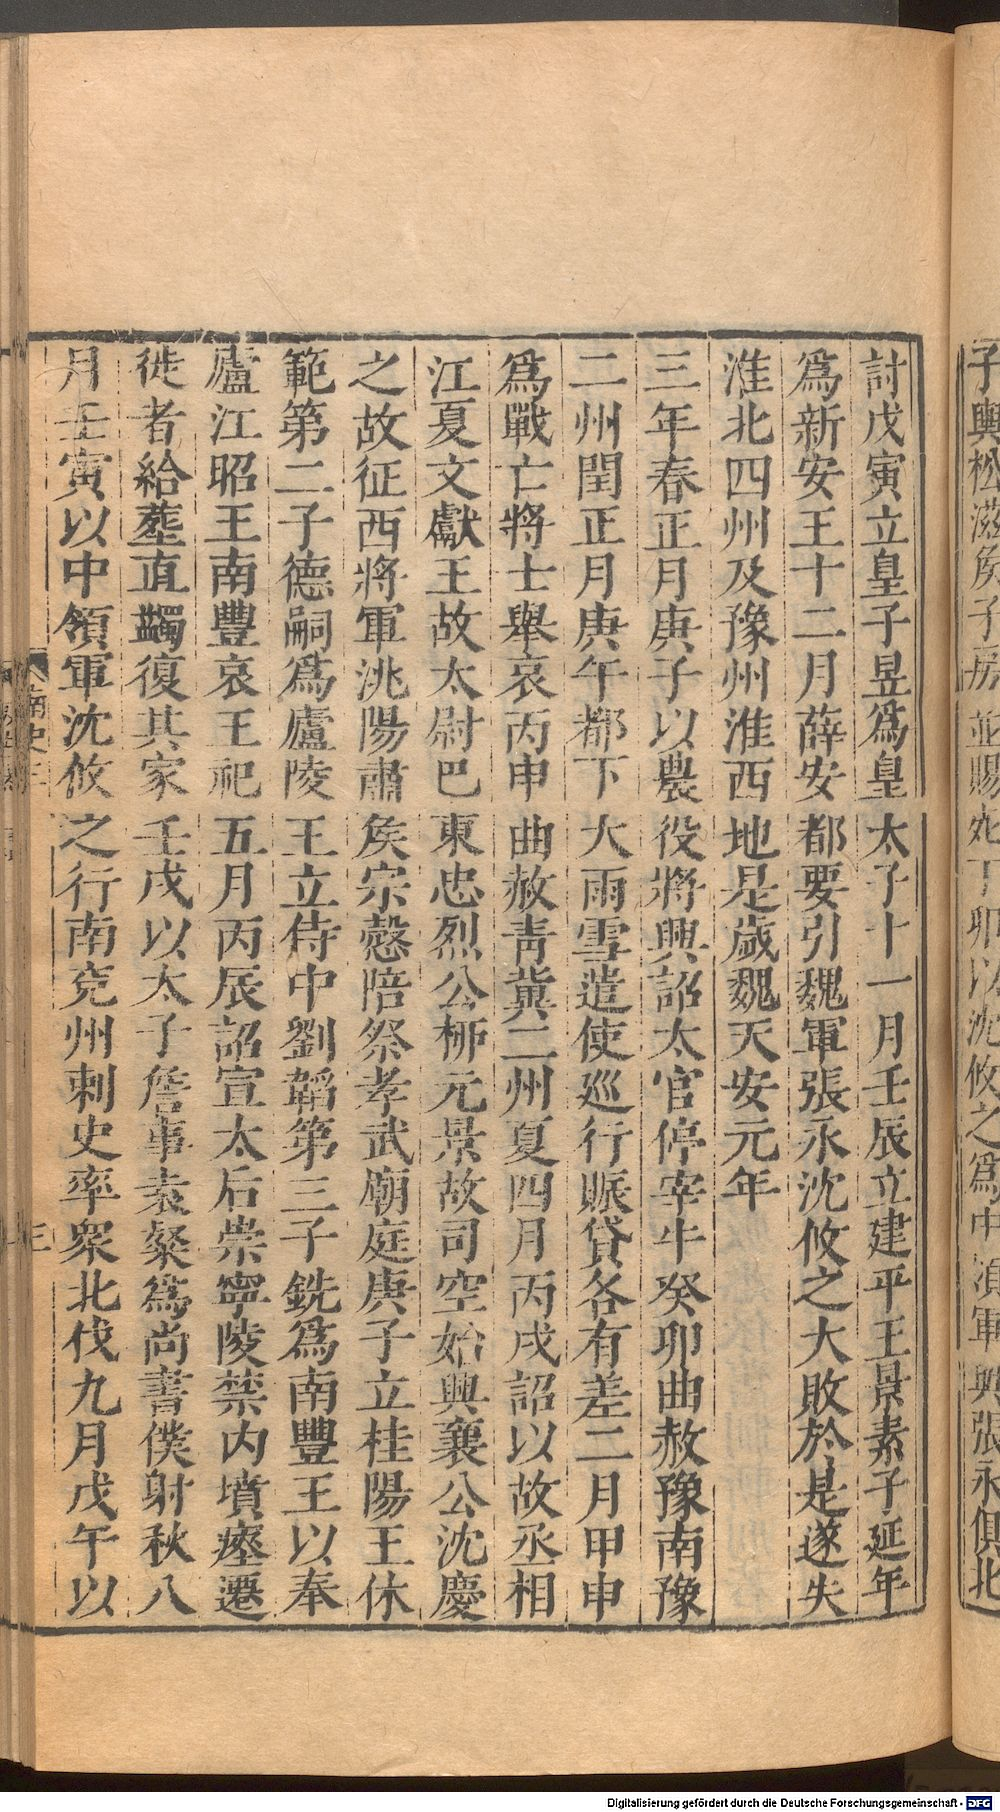 討戊寅立皇子昱爲皇太子十一月壬辰立建平王景素子延年
爲新安王十二月薛安都要引魏軍張永沈攸之大敗於是遂失
淮北四州及豫州淮西地是歲魏天安元年
三年春正月庚子以農役將興詔太官停宰牛癸卯曲赦豫南豫
二州閏正月庚午都下大雨雪遣使巡行賑貸各有差二月甲申
爲戰亡將士舉哀丙申曲赦青冀二州夏四月丙戌詔以故丞相
江夏文獻王故太尉巴東忠烈公柳元景故司空始興襄公沈慶
之故征西將軍洮陽肅侯宗愨陪祭孝武廟庭庚子立桂陽王休
範第二子德嗣爲廬陵王立侍中劉韞第三子銑爲南豐王以奉
廬江昭王南豐哀王祀五月丙辰詔宣太后崇寧陵禁內墳瘞遷
徙者給葬直蠲復其家壬戌以太子詹事袁粲爲尚書僕射秋八
月壬寅以中領軍沈攸之行南兗州刺史率衆北伐九月戊午以
南史三
三
子輿松滋侯子房並賜死丁卯以沈攸之爲中領軍與張永俱北
Digitalisierung gefördert durch die Deutsche Forschungsgemeinschaft - DFG